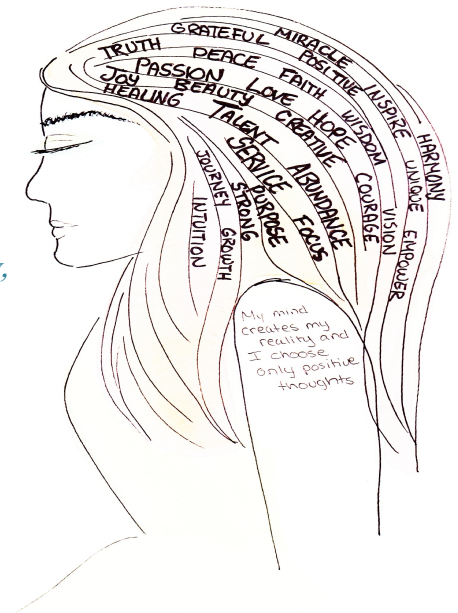 GRATEFUL MIRACLE
TRUTH
PEACE
POSITIVE INSPIRE HARMONY
PASSION
FAITH WISDOM UNIQUE EMPOWER
JOY BEAUTY LOVE HOPE COURAGE VISION
HEALING
TALENT CREATIVE ABUNDANCE
SERVICE FOCUS
PURPOSE
STRONG
JOURNEY GROWTH
INTUITION
My mind
creates my
reality and
I choose
only positive
thoughts